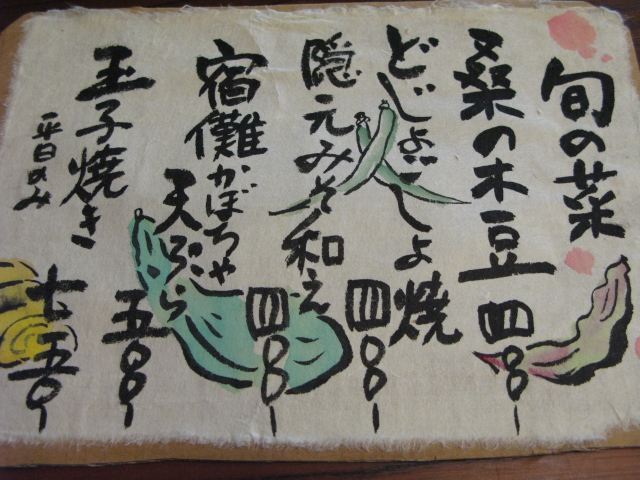 旬の菜
桑の木豆 四〇〇-
どじょごしょ焼 四〇〇-
隠元みそ和え 四〇〇-
宿儺かぼちゃ
天ぷら 五〇〇-
玉子焼き
平日のみ 七五〇-